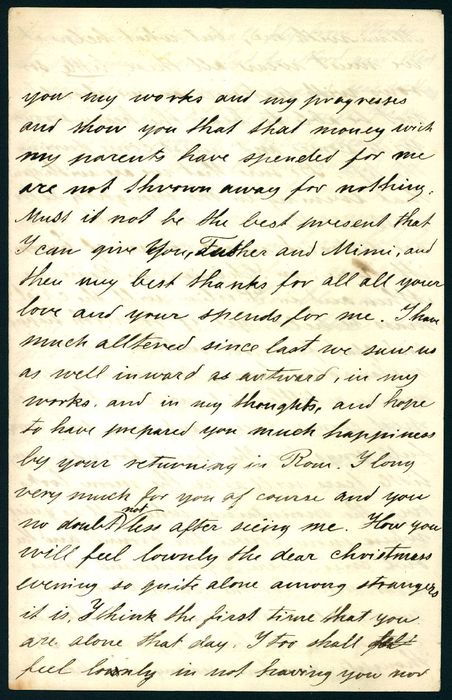 you my works and my progresses
and show you that that money wich
my parents have spended for me
are not thrown away for nothing.
Must it not be the best present that
I can give you, Father and Mimi, and
then my best thanks for all all your
love and your spends for me. I have
much alltered since last we saw us
as well inward as autward, in my
works, and in my thoughts, and hope
to have prepared you much happiness
by your returning in Rom. I long
very much for you of course and you
no doubt not less after seeing me. How you
will feel lownly the dear christmass
evening so quite alone among strangers
it is, I think the first time that you
are alone that day. I too shall
feel lownly in not having you nor